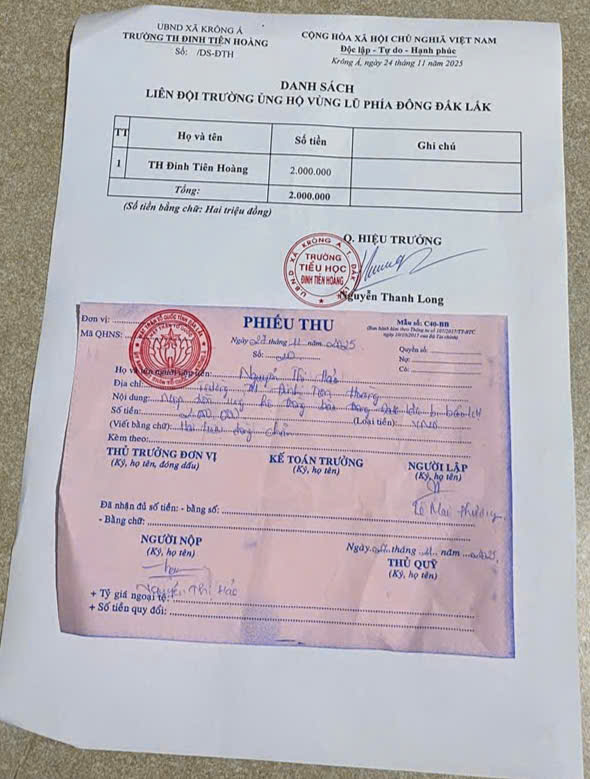 UBND XÃ KRÔNG Á
TRƯỜNG TH ĐINH TIÊN HOÀNG
Số: /DS-ĐTH
CỘNG HÒA XÃ HỘI CHỦ NGHĨA VIỆT NAM
Độc lập - Tự do - Hạnh phúc
Krông Á, ngày 24 tháng 11 năm 2025
DANH SÁCH
LIÊN ĐỘI TRƯỜNG ỦNG HỘ VÙNG LŨ PHÍA ĐÔNG ĐẮK LẮK
TT Họ và tên Số tiền Ghi chú
1 TH Đinh Tiên Hoàng 2.000.000
Tổng: 2.000.000
(Số tiền bằng chữ: Hai triệu đồng)
Q. HIỆU TRƯỞNG
UBND XÃ KRÔNG Á T. ĐẮK LẮK
TRƯỜNG
TIỂU HỌC
ĐINH TIÊN HOÀNG
Nguyễn Thanh Long
Đơn vị:
Mã QHNS:
PHIẾU THU
Ngày 27 tháng 11 năm 2025
Số: 20
Mẫu số: C40-BB
(Ban hành kèm theo Thông tư số 107/2017/TT-BTC
ngày 10/10/2017 của Bộ Tài chính)
Quyển số:
Nợ:
Có:
Họ và tên người nộp tiền: Nguyễn Thị Hảo
Địa chỉ: Trường TH Đinh Tiên Hoàng
Nội dung: Nộp tiền ủng hộ đồng bào Đông Đắk Lắk bị bão lũ
Số tiền: 2.000.000 (Loại tiền): VNĐ
(Viết bằng chữ): Hai triệu đồng chẵn
Kèm theo:
THỦ TRƯỞNG ĐƠN VỊ
(Ký, họ tên, đóng dấu)
KẾ TOÁN TRƯỞNG
(Ký, họ tên)
NGƯỜI LẬP
(Ký, họ tên)
Mai Phương
Đã nhận đủ số tiền: - bằng số:
- Bằng chữ:
NGƯỜI NỘP
(Ký, họ tên)
Nguyễn Thị Hảo
Ngày 27 tháng 11 năm 2025
THỦ QUỸ
(Ký, họ tên)
+ Tỷ giá ngoại tệ:
+ Số tiền quy đổi: